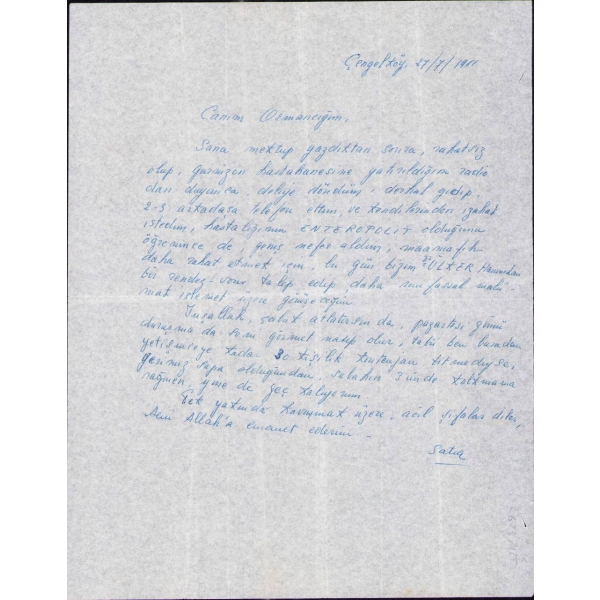 Çengelköy, 27/7/1981
Canım Osmancığım,
Sana mektup yazdıktan sonra, rahatsız
olup, Gurmüzen hastahanesine yatırıldığını radio
dan duyunca deliye döndüm, derhal gidip
2-3 arkadaşa telefon ettim, ve kendilerinden izahat
istedim, hastalığının ENTEROPOLİT olduğunu
öğrenince de, geniş nefes aldım, maamafih
daha rahat etmek için, bu gün bizim ÜLKER Hanımdan
bir rendez-vous talep edip, daha mufassal malû-
mat istemek üzere görüşeceğim
İnşallah, çabuk atlatırsın da, pazartesi günü
duruşma da seni görmek nasip olur, tabii ben buradan
yetişinceye kadar 30 kişilik kontenjan bitmediyse,
yerimiz sapa olduğundan, sabahın 3 ünde kalkmama
rağmen, yine de geç kalıyorum
Pek yakında kavuşmak üzere, acil şifalar diler,
Seni Allah'a emanet ederim -